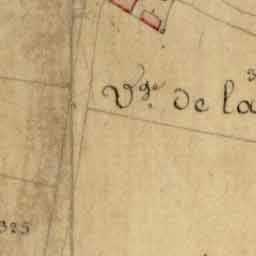 V.ge de la
325